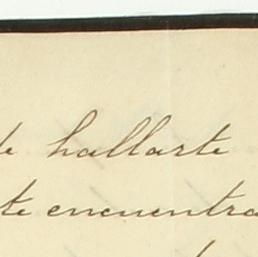 de hallarte
te encuentra